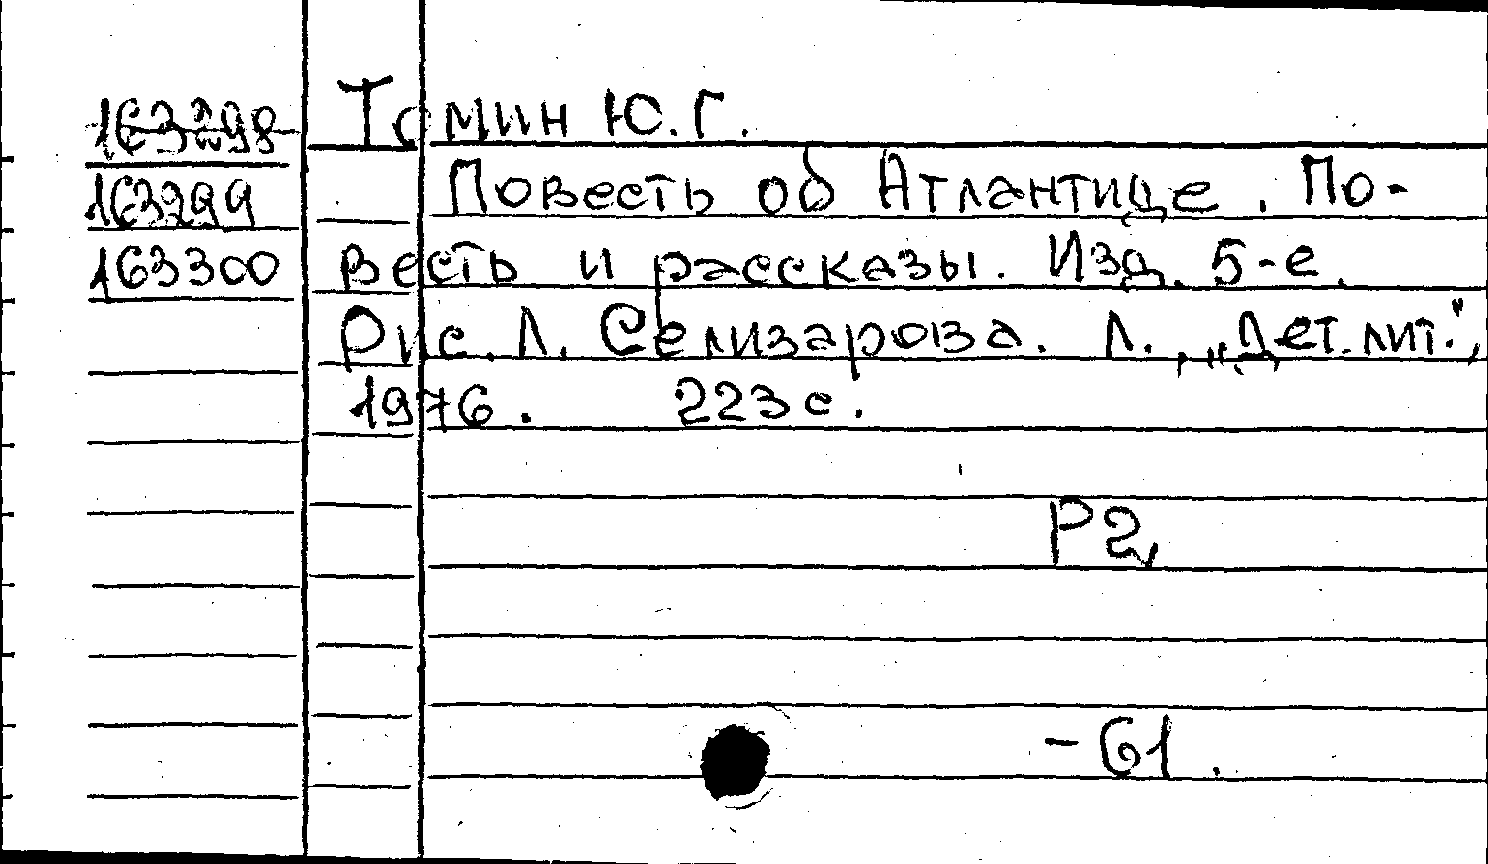 163298 Томин Ю.Г.
163299 Повесть об Атлантиде. По-
163300 весть и рассказы. Изд. 5-е.
Рис. Л. Селизарова. Л., „Дет. лит.",
1976. 223 с.
Р2,
-61.